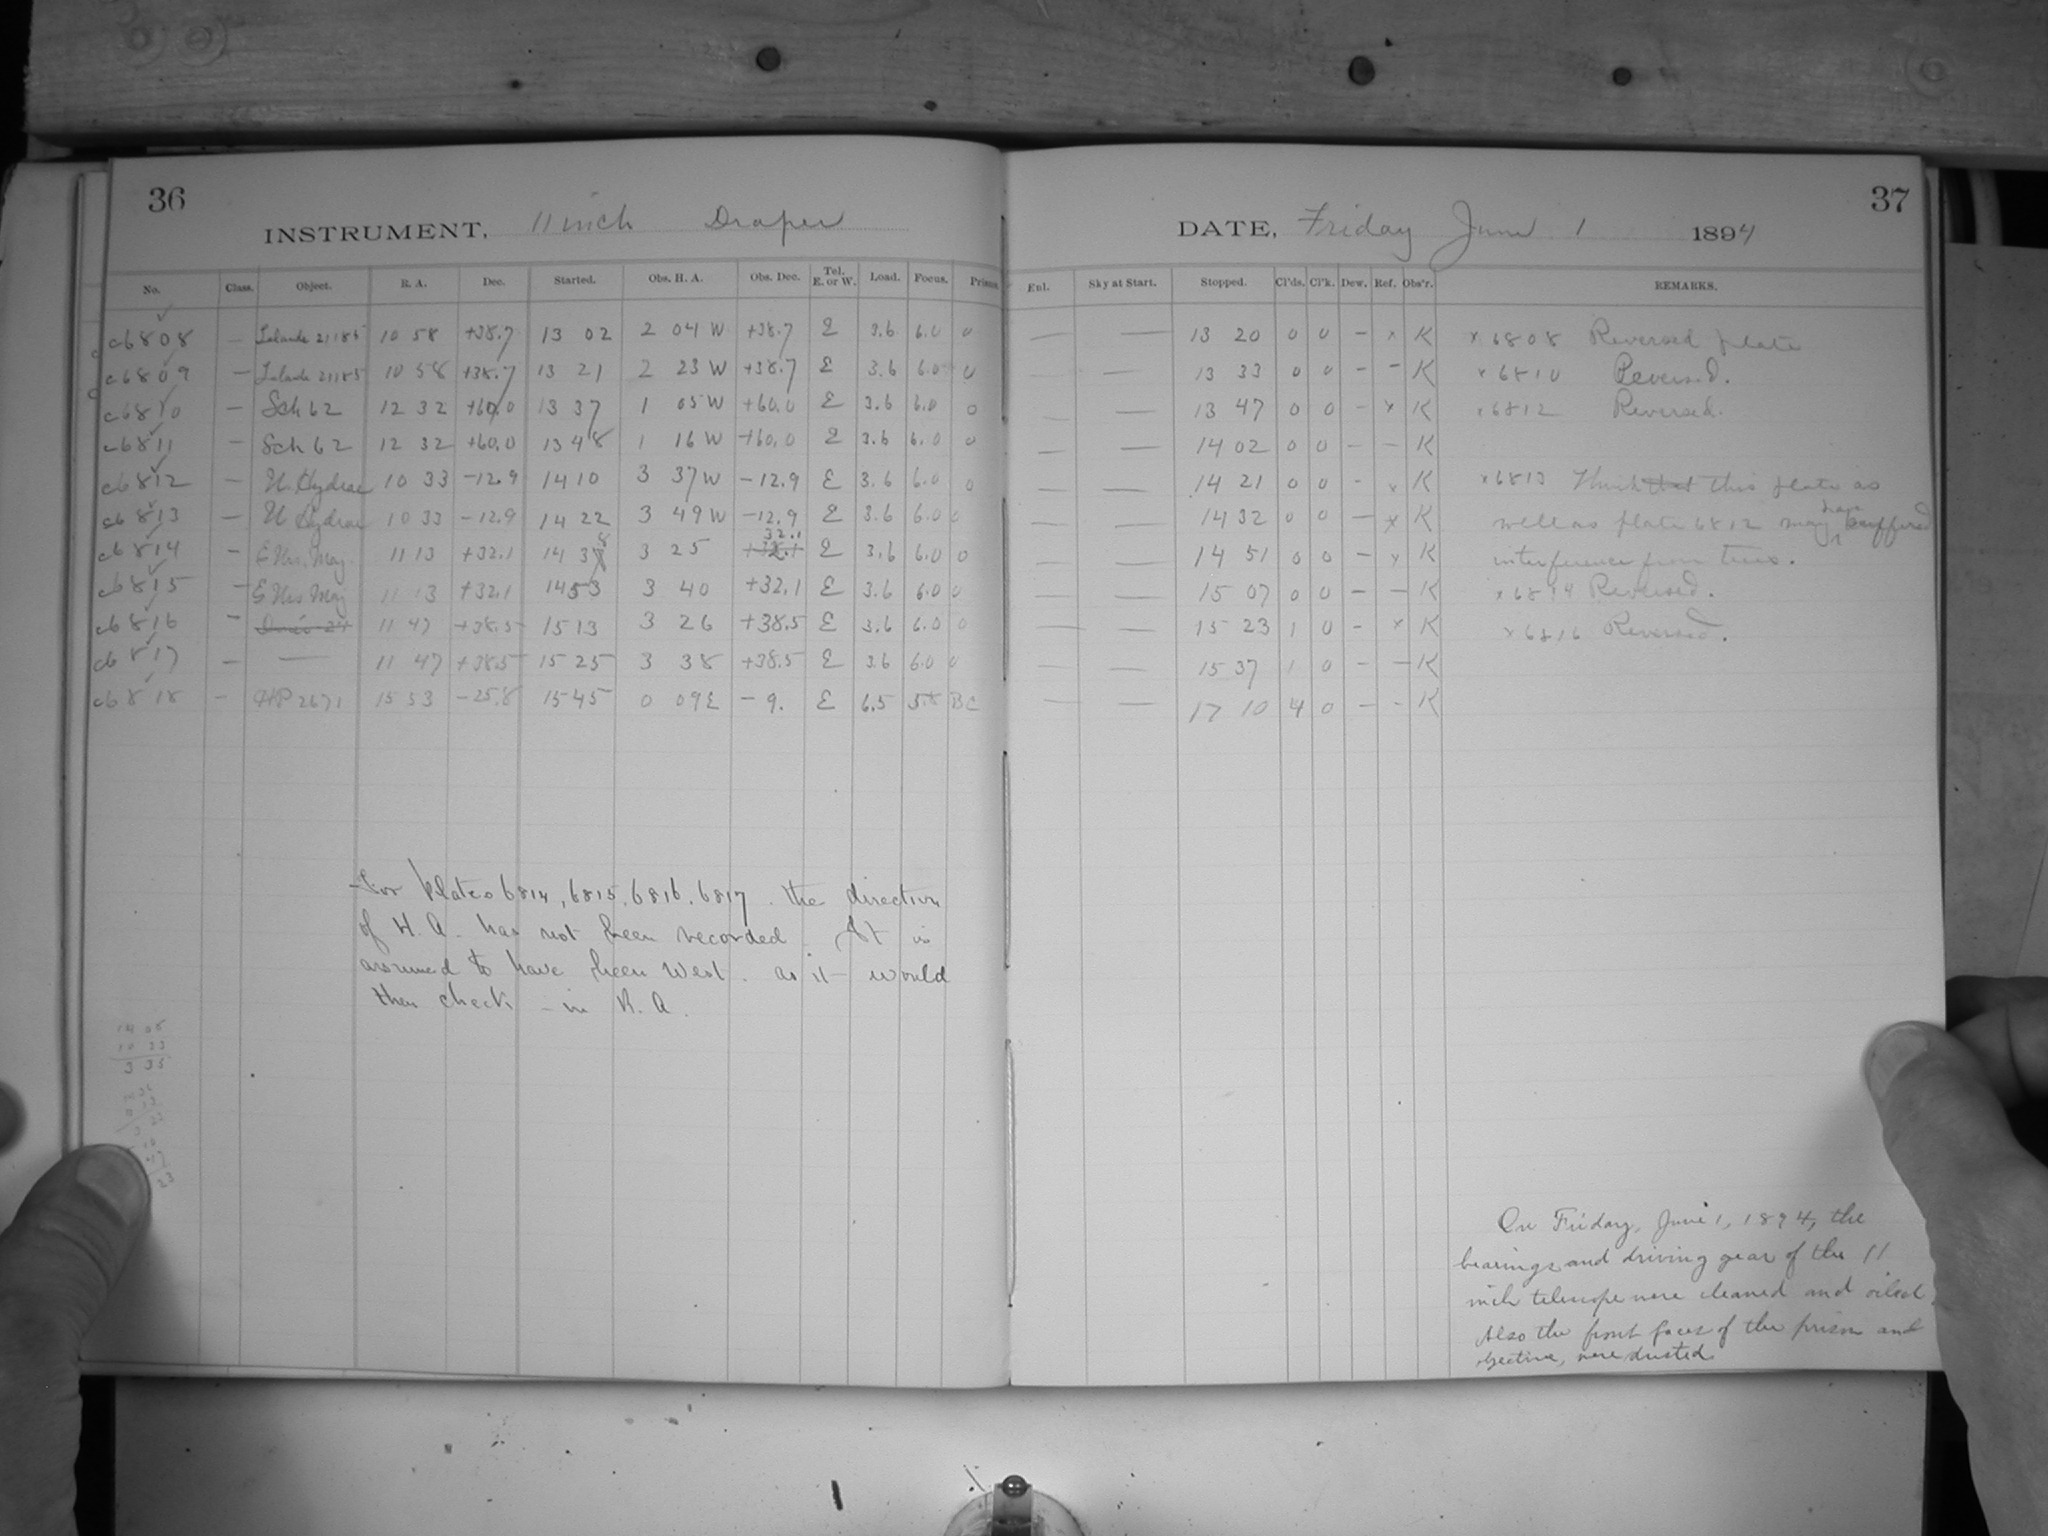 36
INSTRUMENT, 11 inch Draper
No. Class. Object. R. A. Dec. Started. Obs. H. A. Obs. Dec. Tel. E. or W. Load. Focus. Prisms
c6808 — Lalande 21185 10 58 +38.7 13 02 2 04 W +38.7 E 3.6 6.0 0
c6809 — Lalande 21185 10 58 +38.7 13 21 2 23 W +38.7 E 3.6 6.0 0
c6810 — Sch 62 12 32 +60.0 13 37 1 05 W +60.0 E 3.6 6.0 0
c6811 — Sch 62 12 32 +60.0 13 48 1 16 W +60.0 E 3.6 6.0 0
c6812 — U. Hydrae 10 33 -12.9 14 10 3 37 W -12.9 E 3.6 6.0 0
c6813 — U Hydrae 10 33 -12.9 14 22 3 49 W -12.9 E 3.6 6.0 0
c6814 — Urs. Maj. 11 13 +32.1 14 38 3 25 32.1 E 3.6 6.0 0
c6815 — Urs Maj 11 13 +32.1 14 53 3 40 +32.1 E 3.6 6.0 0
c6816 — 11 47 +38.5 15 13 3 26 +38.5 E 3.6 6.0 0
c6817 — — 11 47 +38.5 15 25 3 38 +38.5 E 3.6 6.0 0
c6818 — HP 2671 15 53 -25.8 15 45 0 09 E - 9. E 6.5 5.8 BC
For Plates 6814, 6815, 6816, 6817. the direction
of H. A. has not been recorded. It is
assumed to have been West. as it would
then check in R. A.
14 08
10 33
3 35
37
DATE, Friday June 1 1894
Enl. Sky at Start. Stopped. Cl'ds. Cl'k. Dew. Ref. Obs'r. REMARKS.
— — 13 20 0 0 — x K x 6808 Reversed plate
— — 13 33 0 0 — — K x 6810 Reversed.
— — 13 47 0 0 — x K x 6812 Reversed.
— — 14 02 0 0 — — K
— — 14 21 0 0 — x K x 6813 Think that this plate as
— — 14 32 0 0 — x K well as plate 6812 may have suffered
— — 14 51 0 0 — x K interference from trees.
— — 15 07 0 0 — — K x 6814 Reversed.
— — 15 23 1 0 — x K x 6816 Reversed.
— — 15 37 1 0 — — K
— — 17 10 4 0 — — K
On Friday, June 1, 1894, the
bearings and driving gear of the 11
inch telescope were cleaned and oiled.
Also the front faces of the prism and
objective, were dusted